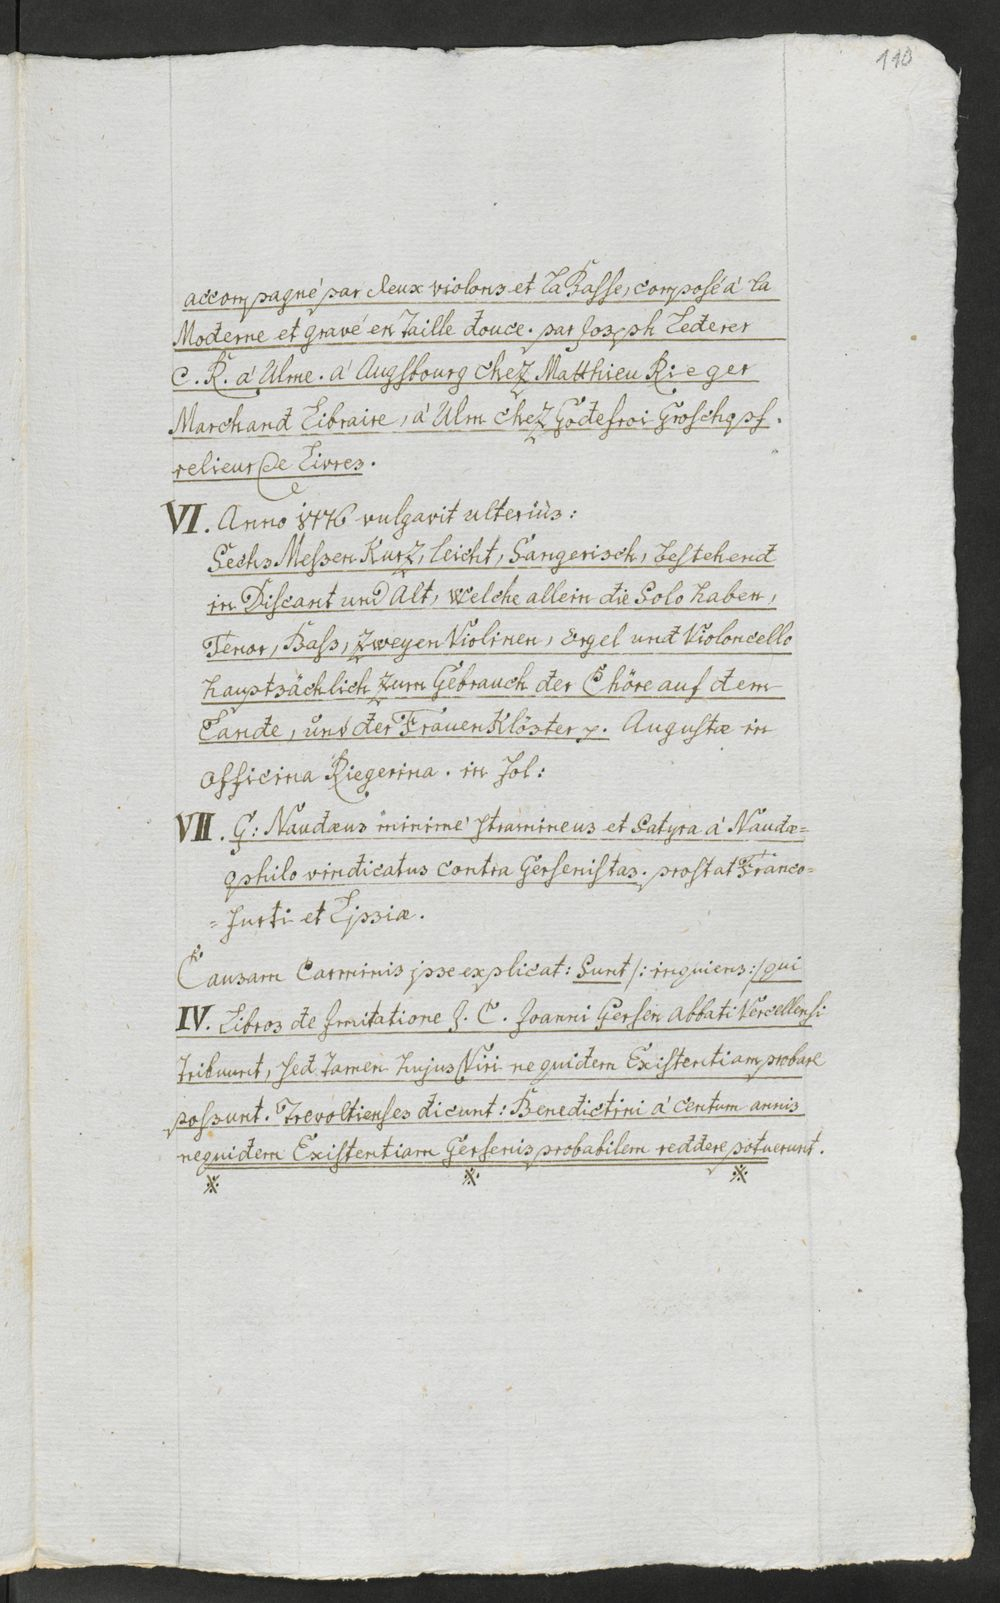 110
accompagné par deux violons et la Basse, composé à la
Moderne et gravé en Taille douce. par Joseph Lederer
C. R. à Ulme. à Augsbourg chez Matthieu Rieger
Marchand Libraire, à Ulm chez Godefroi Groschopf.
relieur de Livres.
VI. Anno 1776 vulgavit ulteriùs:
Sechs Messen Kurz, leicht, Sangerisch, bestehend
in Discant und Alt, welche allein die Solo haben,
Tenor, Bass, zweyen Violinen, Orgel und Violoncello
hauptsächlich zum Gebrauch der Chöre auf dem
Lande, und der Frauen Klöster p. Augustæ in
officina Riegerina. in fol:
VII. G: Naudæus minimè stramineus et Satyra à Naudæ=
ophilo vindicatus contra Gersenistas. prostat Franco=
=furti et Lipsiæ.
Causam Carminis jpse explicat: Sunt /: inquiens:/ qui
IV. Libros de Jmitatione J. C. Joanni Gersen Abbati Vercellensi
tribuunt, sed tamen hujus Viri ne quidem Existentiam probare
possunt. Trevoltienses dicunt: Benedictini à centum annis
nequidem Existentiam Gersenis probabilem reddere potuerunt.
※ ※ ※